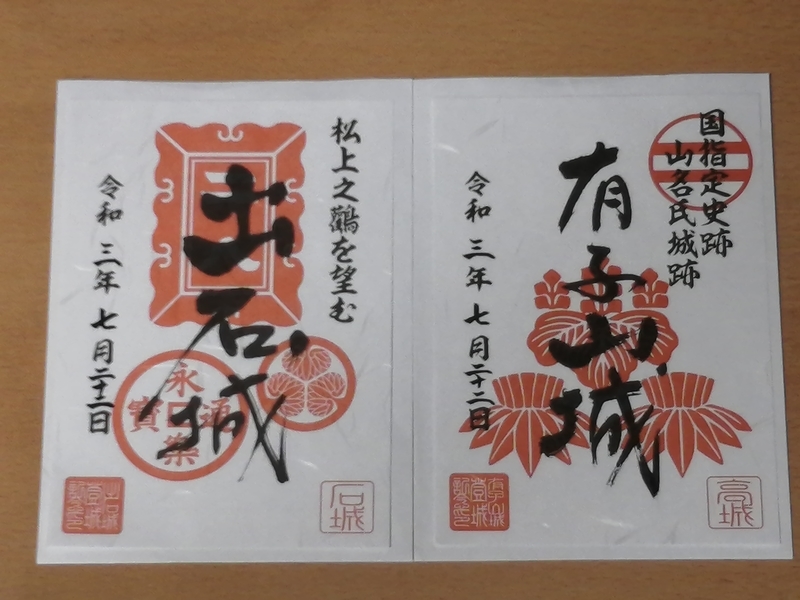 国指定史跡
山名氏城跡
有子山城
令和三年七月二十二日
高城
松上之鸛を望む
出石城
令和三年七月二十二日
永楽通寳
石城